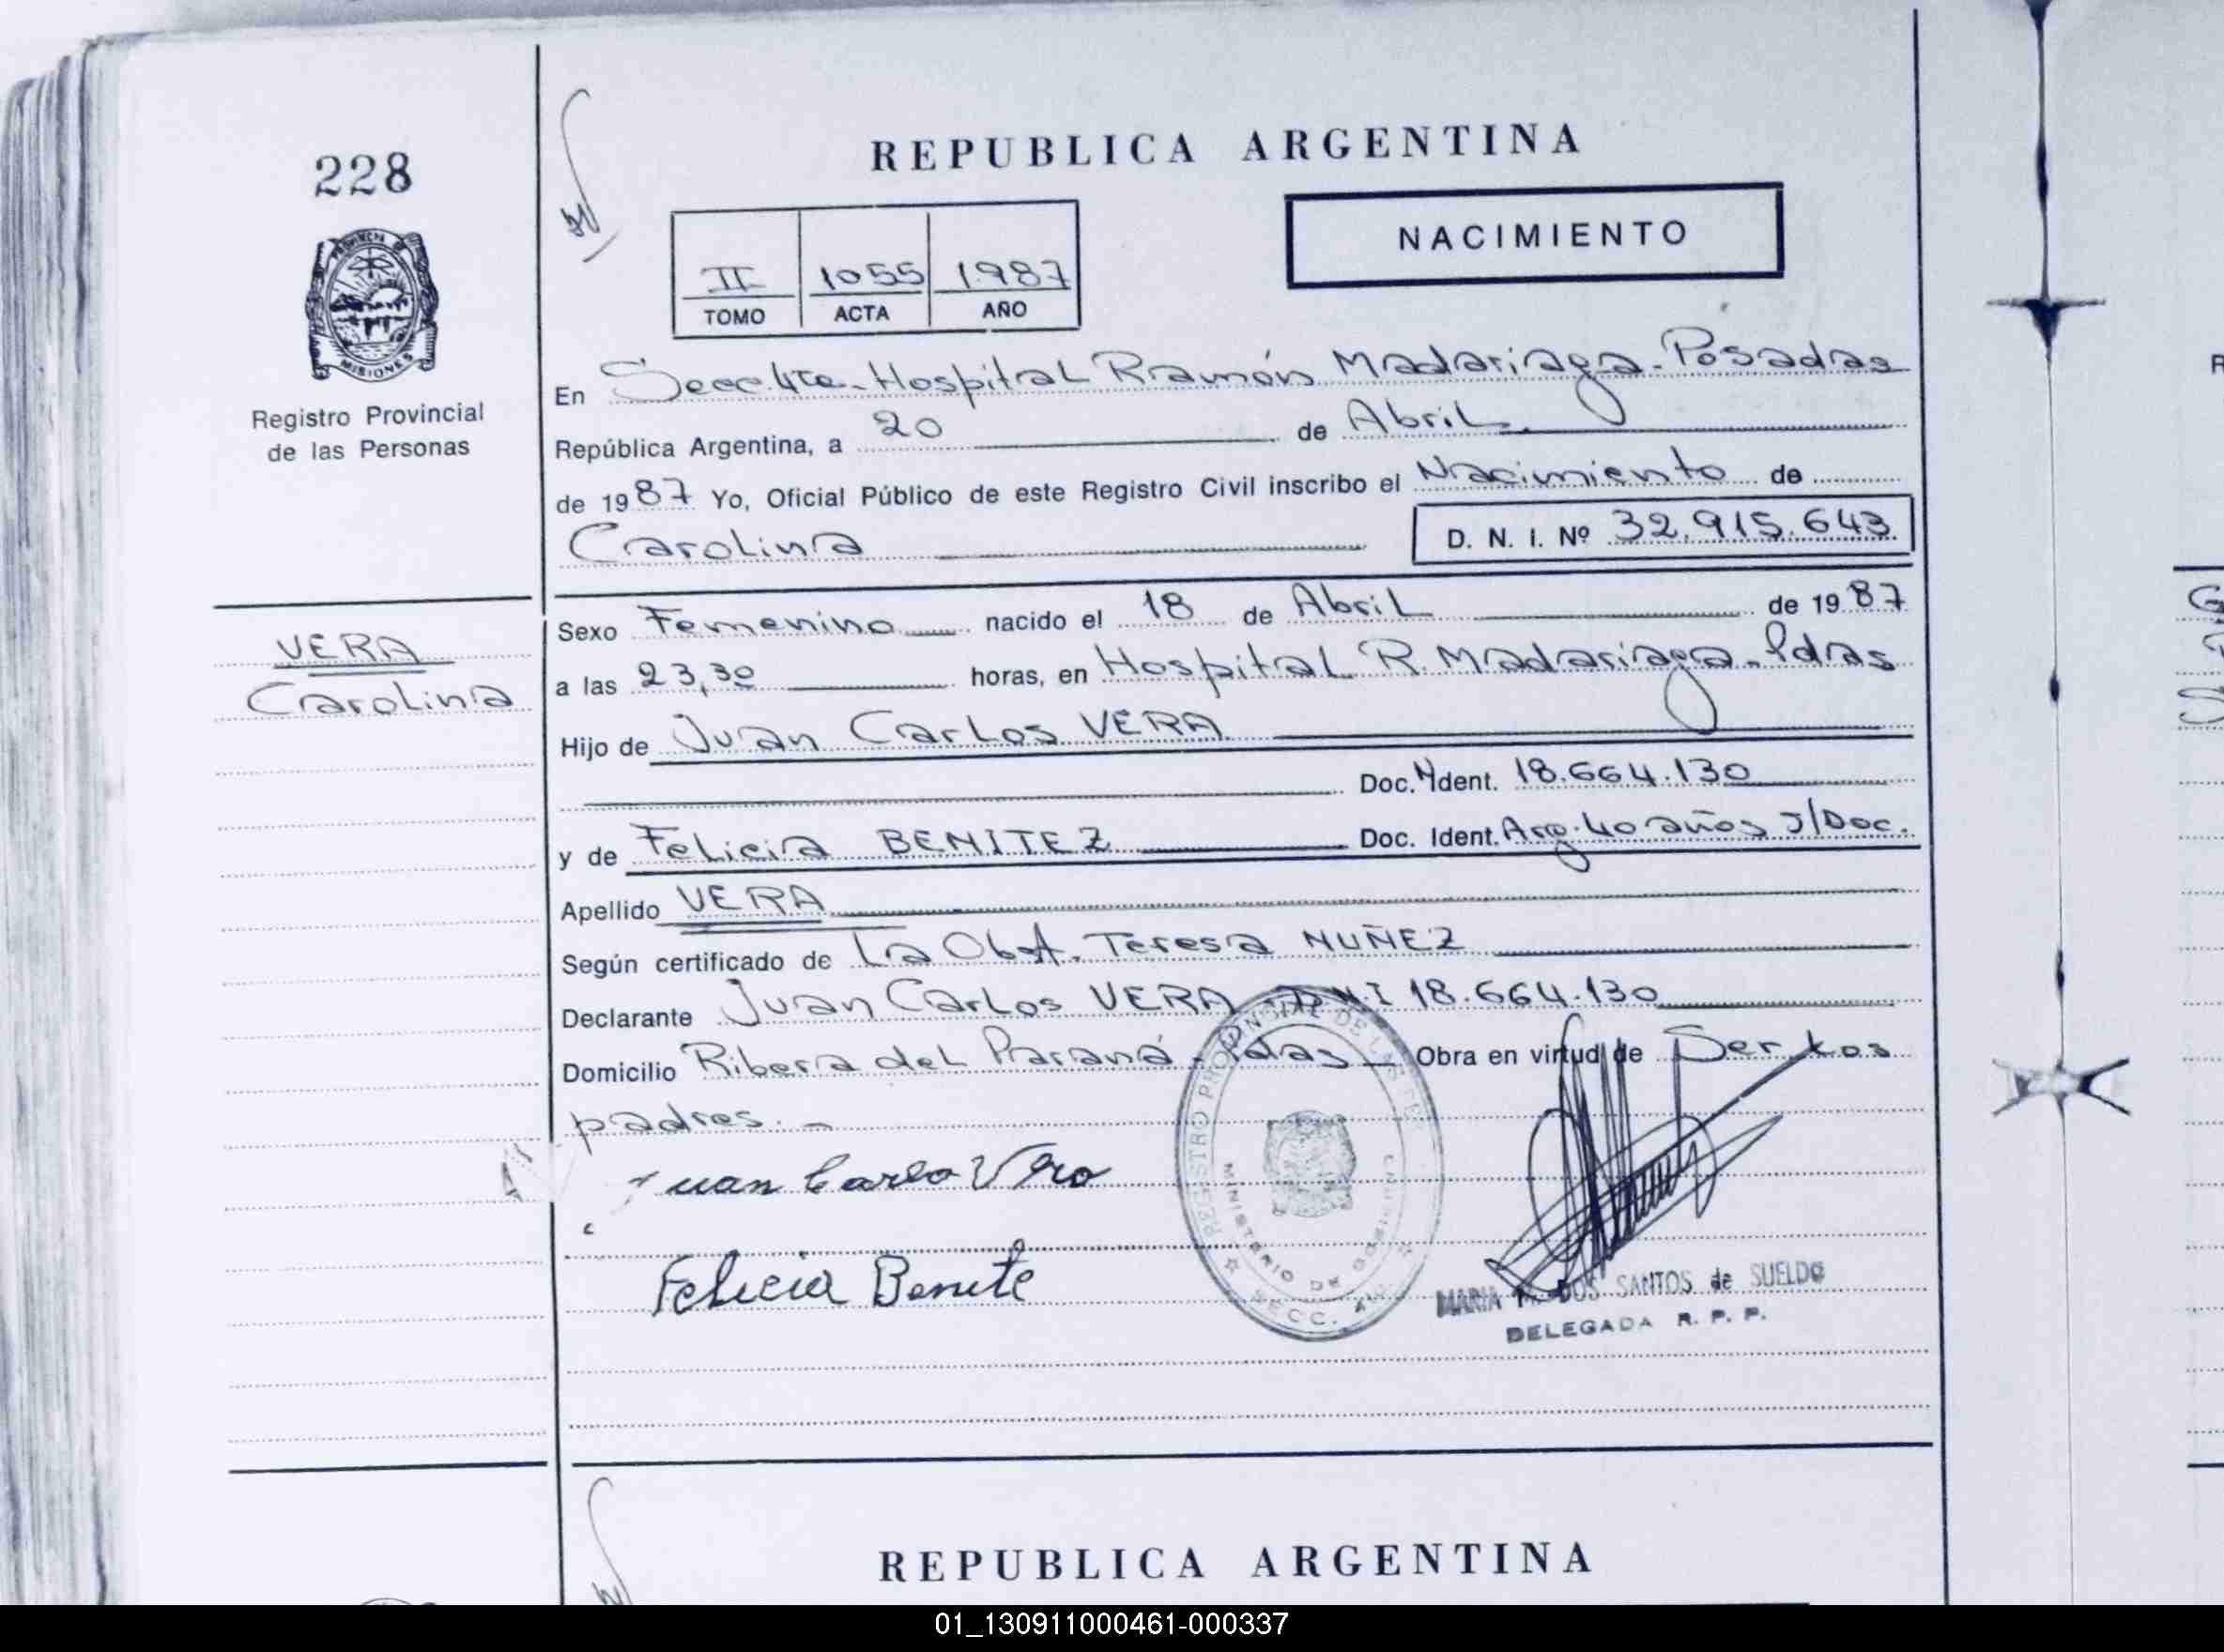 228
PROVINCIA D
MISIONES
Registro Provincial
de las Personas
VERA
Carolina
REPUBLICA ARGENTINA
NACIMIENTO
II 1055 1987
TOMO ACTA AÑO
En Secc. 4ta. Hospital Ramón Madariaga - Posadas
República Argentina, a 20 de Abril
de 1987 Yo, Oficial Público de este Registro Civil inscribo el Nacimiento de
Carolina D. N. I. Nº 32.915.643
Sexo Femenino nacido el 18 de Abril de 1987
a las 23,30 horas, en Hospital R. Madariaga - Pdas
Hijo de Juan Carlos VERA
Doc. Ident. 18.664.130
y de Felicia BENITEZ Doc. Ident. Arg. 40 años S/Doc.
Apellido VERA
Según certificado de La Obst. Teresa NUÑEZ
Declarante Juan Carlos VERA D.N.I 18.664.130
Domicilio Ribera del Paraná - Pdas Obra en virtud de Ser los
padres. -
Juan Carlo Vera
Felicia Benite
REGISTRO PROVINCIAL DE LAS
MINISTERIO DE GOBIERNO
SECC.
MARIA DOS SANTOS de SUELDO
DELEGADA R. P. P.
REPUBLICA ARGENTINA
01_130911000461-000337